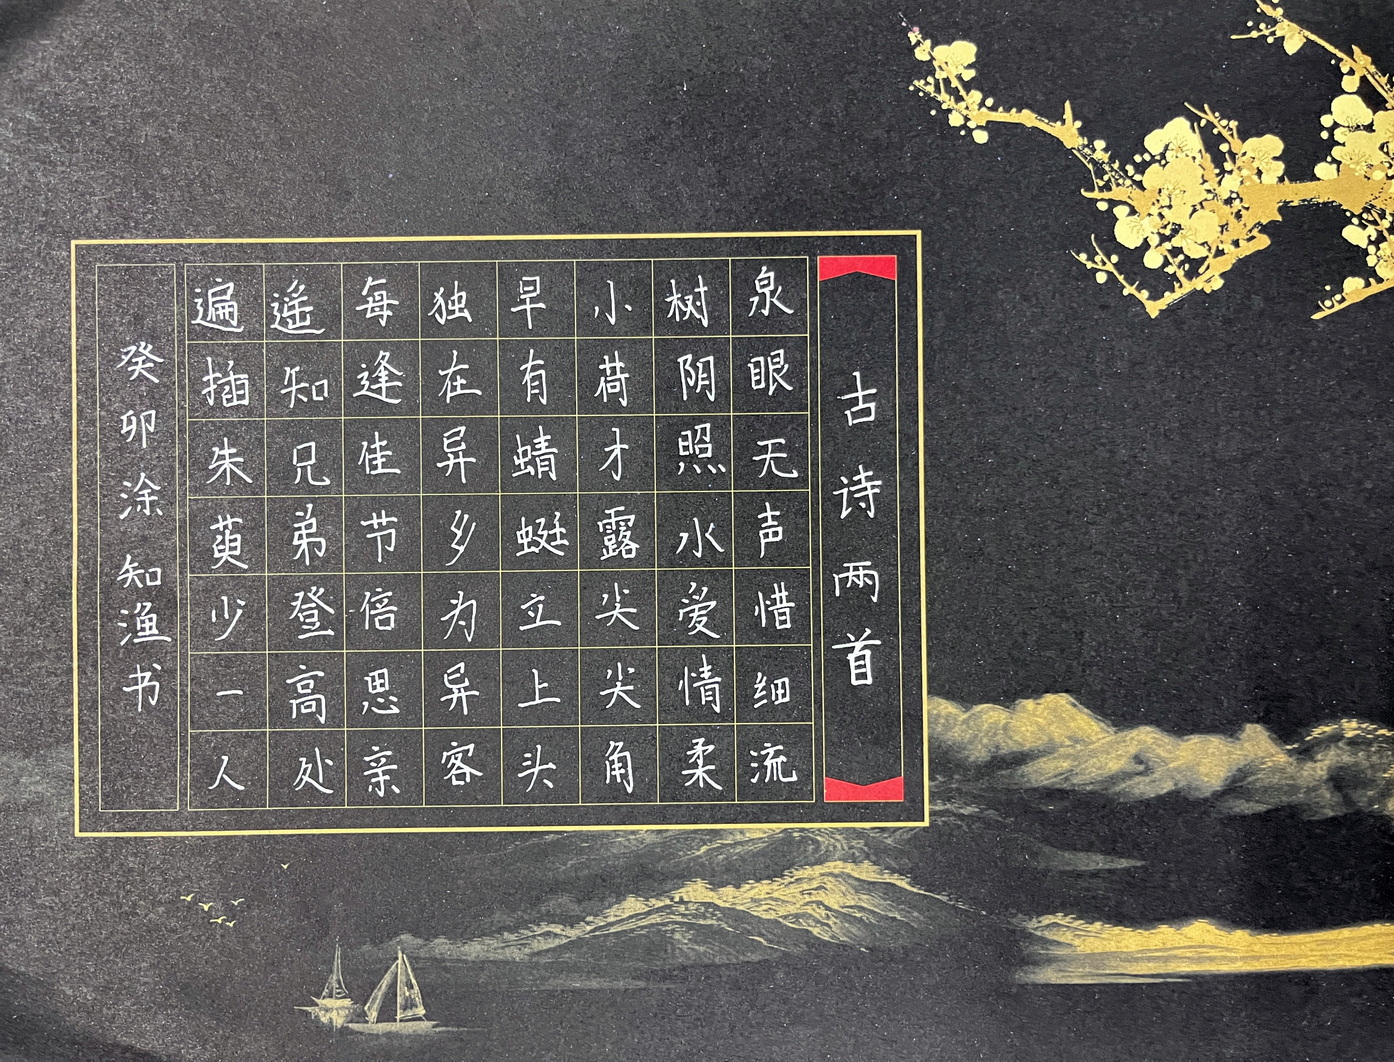 古诗两首
泉眼无声惜细流
树阴照水爱情柔
小荷才露尖尖角
早有蜻蜓立上头
独在异乡为异客
每逢佳节倍思亲
遥知兄弟登高处
遍插朱萸少一人
癸卯涂知渔书